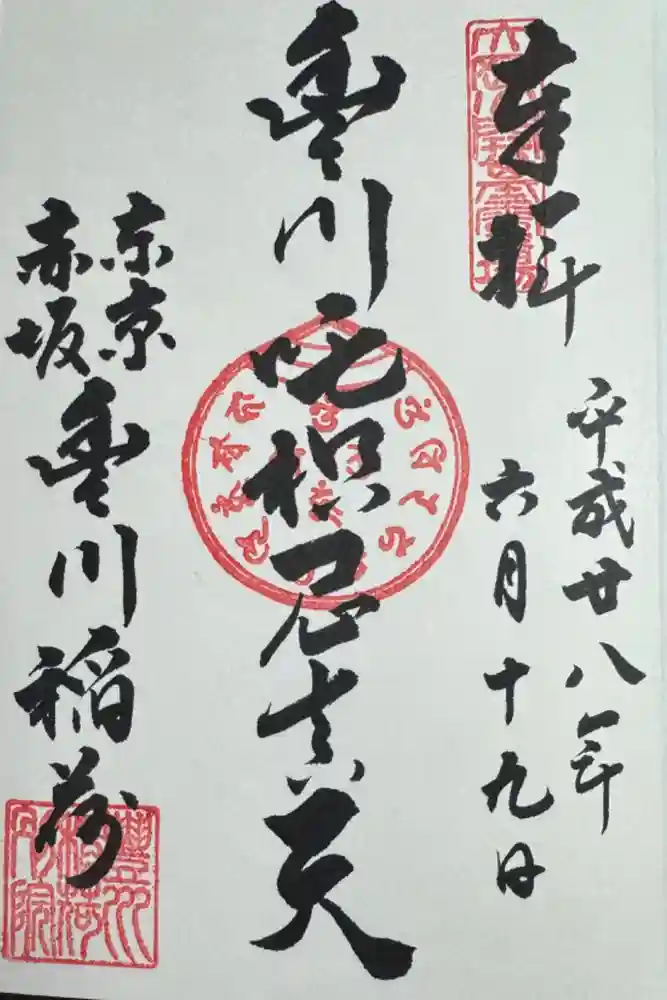 奉拝
平成廿八年
六月十九日
豊川吒枳尼真天
東京
赤坂
豊川稲荷
豐川
稲荷
別院